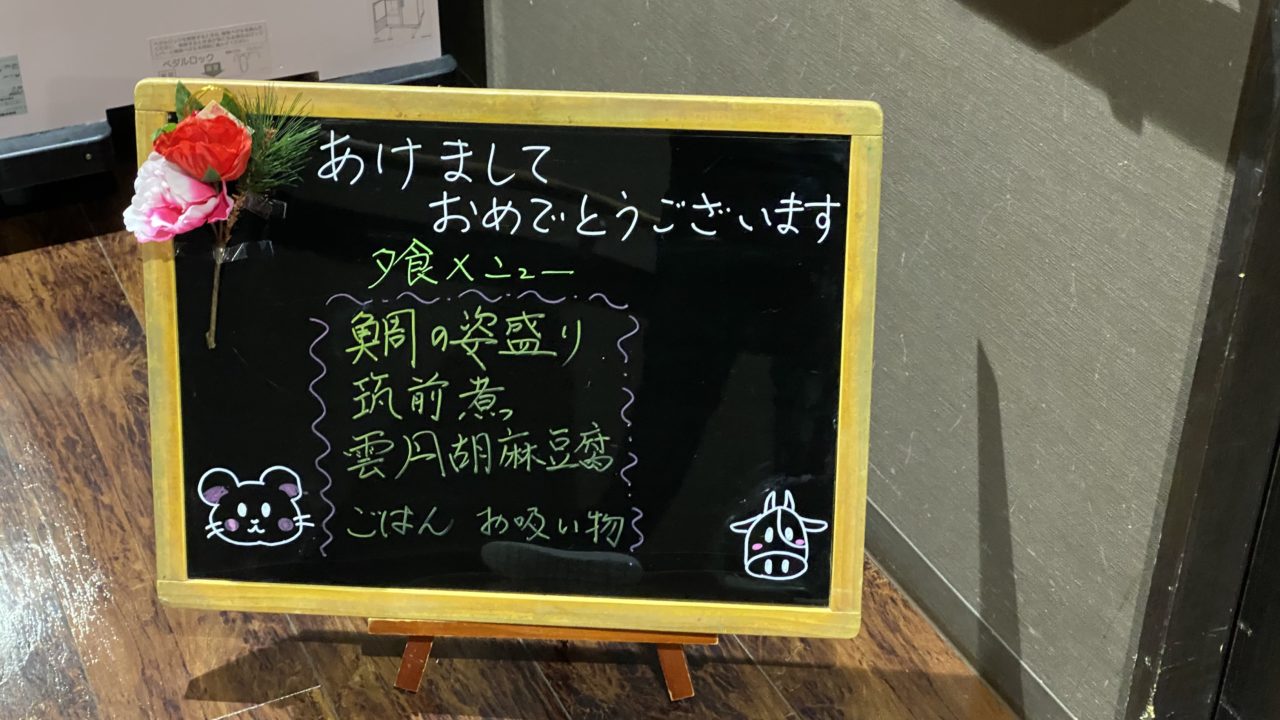 ペダルロック
あけまして
おめでとうございます
夕食メニュー
鯛の姿盛り
筑前煮
雲丹胡麻豆腐
ごはん お吸い物